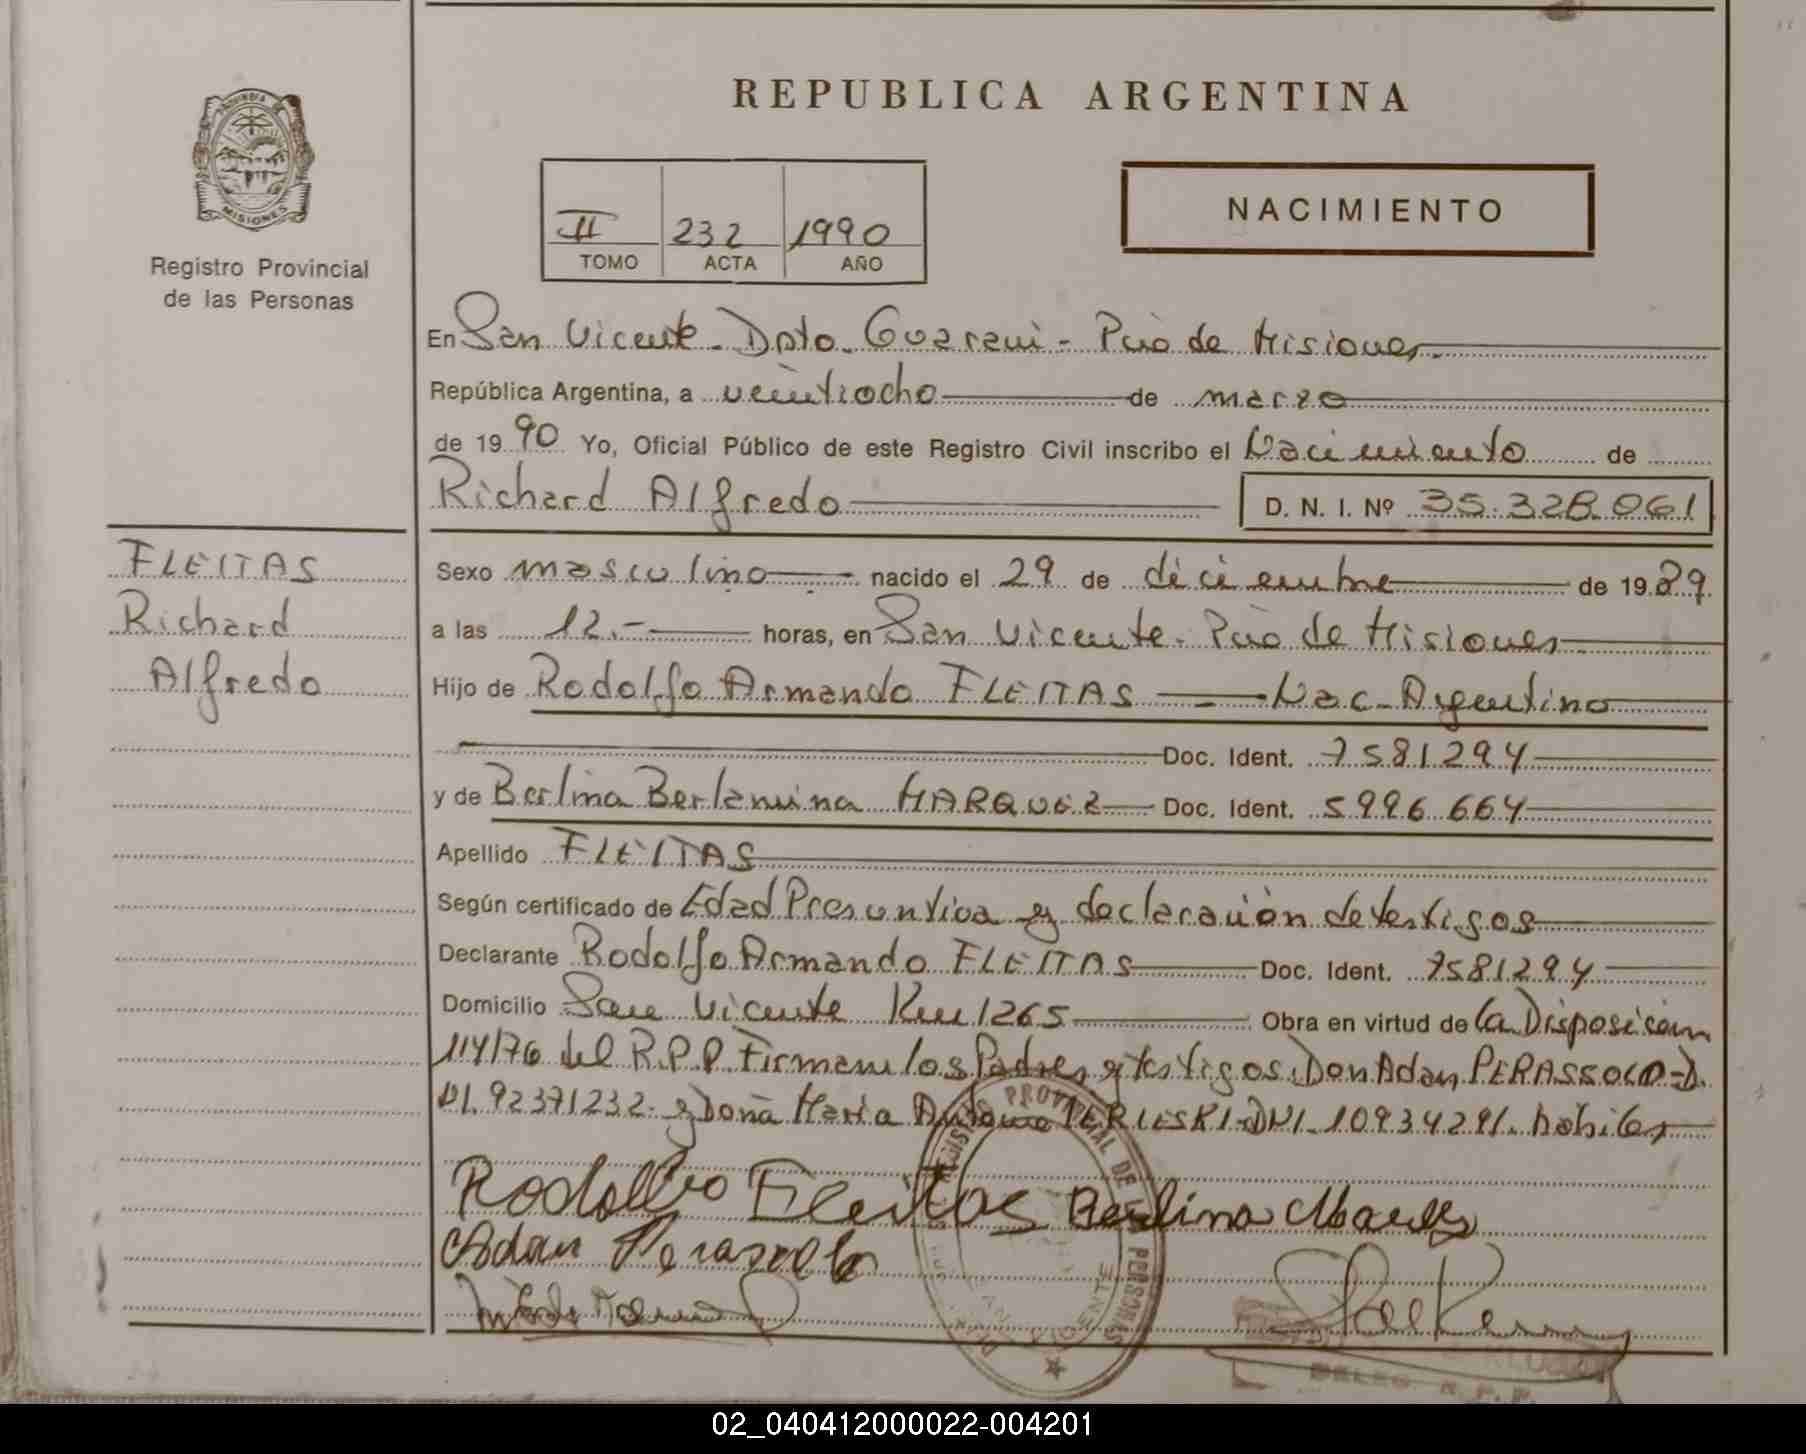 REPUBLICA ARGENTINA
PROVINCIA DE
MISIONES
Registro Provincial
de las Personas
II 232 1990
TOMO ACTA AÑO
NACIMIENTO
En San Vicente - Dpto. Guarani - Pcia de Misiones.
República Argentina, a veintiocho de marzo
de 19 90 Yo, Oficial Público de este Registro Civil inscribo el Nacimiento de
Richard Alfredo D. N. I. Nº 35.328.061
FLEITAS
Richard
Alfredo
Sexo masculino nacido el 29 de diciembre de 19 89.
a las 12.- horas, en San Vicente - Pcia de Misiones
Hijo de Rodolfo Armando FLEITAS Nac. Argentino
Doc. Ident. 7581294
y de Berlina Berlamina MARQUEZ Doc. Ident. 5996664
Apellido FLEITAS
Según certificado de Edad Presuntiva y declaración de testigos
Declarante Rodolfo Armando FLEITAS Doc. Ident. 7581294
Domicilio San Vicente Km 1265 Obra en virtud de la Disposición
114/76 del R.P.P. Firman los Padres y testigos: Don Adan PERASSOLO - D.
NI. 92371232. y Doña Maria DNI. 10934291. hábiles
Rodolfo Fleitas Berlina
Adan Perasollo
REGISTRO PROVINCIAL DE LAS PERSONAS
DELEG. R. P. P.
02_040412000022-004201